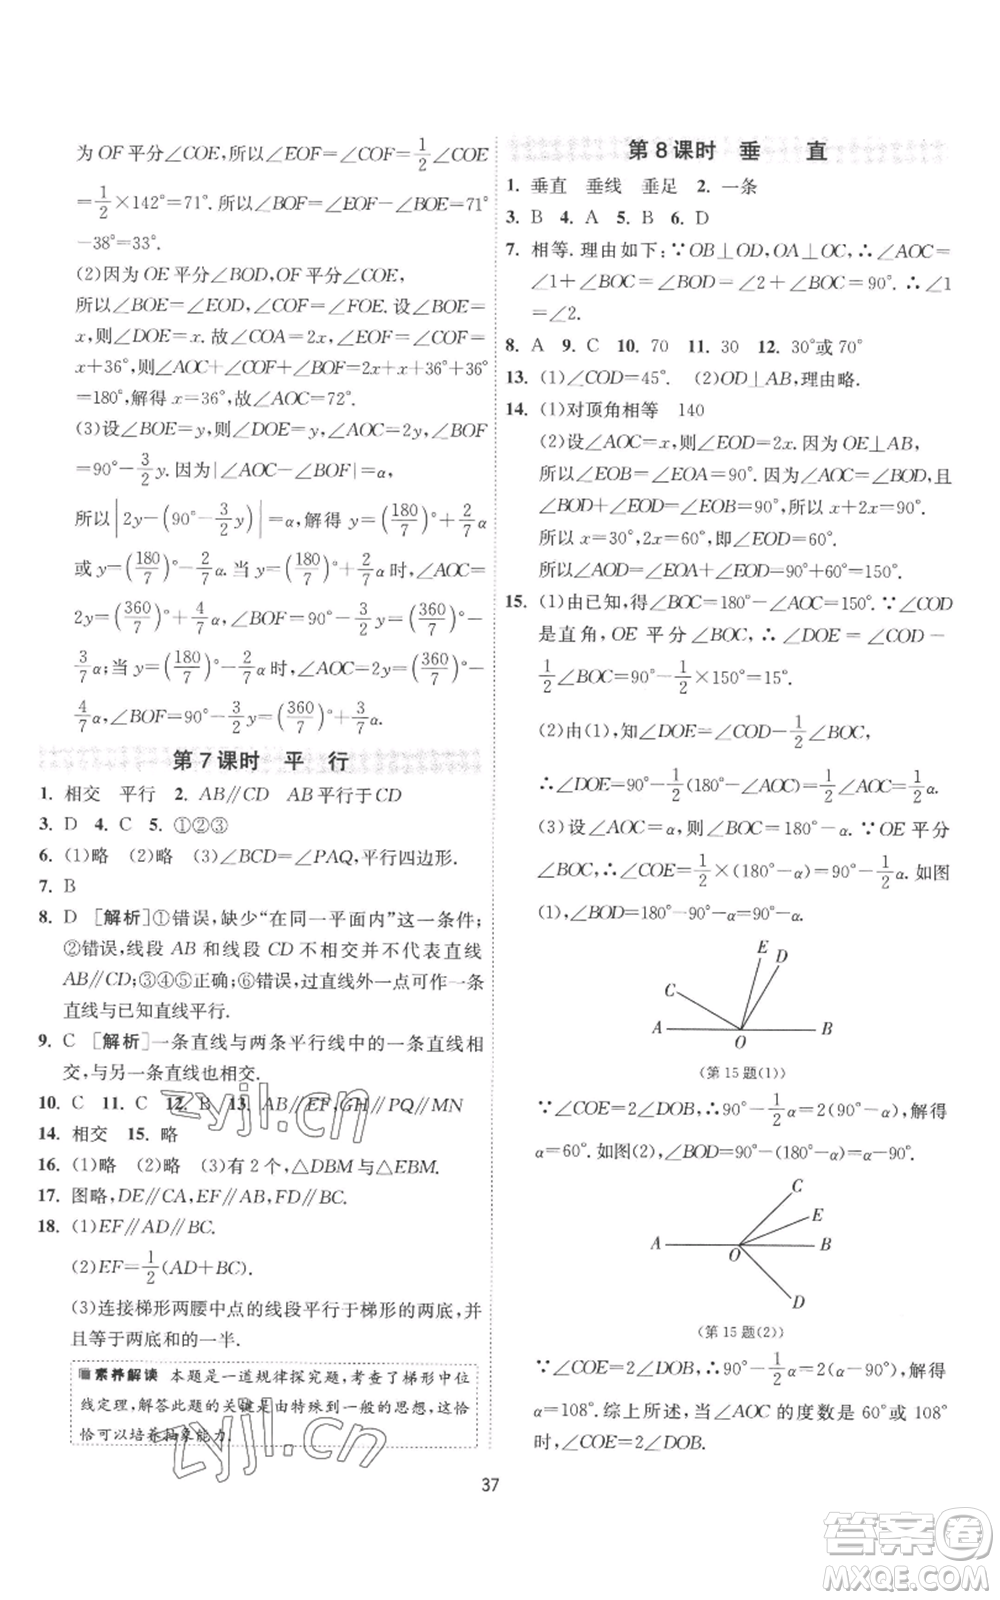 为OF平分∠COE,所以∠EOF=∠COF=1/2∠COE
=1/2×142°=71°.所以∠BOF=∠EOF-∠BOE=71°
-38°=33°.
(2)因为OE平分∠BOD,OF平分∠COE,
所以∠BOE=∠EOD,∠COF=∠FOE.设∠BOE=
x,则∠DOE=x.故∠COA=2x,∠EOF=∠COF=
x+36°,则∠AOC+∠COF+∠BOF=2x+x+36°+36°
=180°,解得x=36°,故∠AOC=72°.
(3)设∠BOE=y,则∠DOE=y,∠AOC=2y,∠BOF
=90°-3/2y.因为|∠AOC-∠BOF|=α,
所以|2y-(90°-3/2y)|=α,解得y=(180/7)°+2/7α
或y=(180/7)°-2/7α.当y=(180/7)°+2/7α时,∠AOC=
2y=(360/7)°+4/7α,∠BOF=90°-3/2y=(360/7)°-
3/7α;当y=(180/7)°-2/7α时,∠AOC=2y=(360/7)°-
4/7α,∠BOF=90°-3/2y=(360/7)°+3/7α.
第7课时 平 行
1. 相交 平行 2. AB∥CD AB平行于CD
3. D 4. C 5. ①②③
6. (1)略 (2)略 (3)∠BCD=∠PAQ,平行四边形.
7. B
8. D [解析]①错误,缺少“在同一平面内”这一条件;
②错误,线段AB和线段CD不相交并不代表直线
AB∥CD;③④⑤正确;⑥错误,过直线外一点有一条
直线与已知直线平行.
9. C [解析]一条直线与两条平行线中的一条直线相
交,与另一条直线也相交.
10. C 11. C 12. B 13. AB∥EF,GH∥PQ∥MN
14. 相交 15. 略
16. (1)略 (2)略 (3)有2个,△DBM与△EBM.
17. 图略,DE∥CA,EF∥AB,FD∥BC.
18. (1)EF∥AD∥BC.
(2)EF=1/2(AD+BC).
(3)连接梯形两腰中点的线段平行于梯形的两底,并
且等于两底和的一半.
素养解读 本题是一道规律探究题,考查了梯形中位
线定理,解答此题的关键是由特殊到一般的思想,这恰
恰可以培养抽象能力.
第8课时 垂 直
1. 垂直 垂线 垂足 2. 一条
3. B 4. A 5. B 6. D
7. 相等.理由如下:∵OB⊥OD,OA⊥OC,∴∠AOC=
∠1+∠BOC=∠BOD=∠2+∠BOC=90°.∴∠1
=∠2.
8. A 9. C 10. 70 11. 30 12. 30°或70°
13. (1)∠COD=45°. (2)OD⊥AB,理由略.
14. (1)对顶角相等 140
(2)设∠AOC=x,则∠EOD=2x.因为OE⊥AB,
所以∠EOB=∠EOA=90°.因为∠AOC=∠BOD,且
∠BOD+∠EOD=∠BOE=90°,所以x+2x=90°.
所以x=30°,2x=60°,即∠EOD=60°.
所以∠AOD=∠EOA+∠EOD=90°+60°=150°.
15. (1)由已知,得∠BOC=180°-∠AOC=150°.∵∠COD
是直角,OE平分∠BOC,∴∠DOE=∠COD-
1/2∠BOC=90°-1/2×150°=15°.
(2)由(1),知∠DOE=∠COD-1/2∠BOC,
∴∠DOE=90°-1/2(180°-∠AOC)=1/2∠AOC=1/2α.
(3)设∠AOC=α,则∠BOC=180°-α.∵OE平分
∠BOC,∴∠COE=1/2×(180°-α)=90°-1/2α.如图
(1),∠BOD=180°-90°-α=90°-α.
A O B C E D
(第15题(1))
∵∠COE=2∠DOB,∴90°-1/2α=2(90°-α),解得
α=60°.如图(2),∠BOD=90°-(180°-α)=α-90°.
A O B C E D
(第15题(2))
∵∠COE=2∠DOB,∴90°-1/2α=2(α-90°),解得
α=108°.综上所述,当∠AOC的度数是60°或108°
时,∠COE=2∠DOB.
37
zyjl.cn
zyjl.cn
答案卷
MXQE.COM